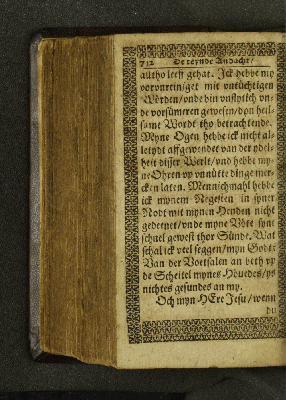 712 De reynde Andacht/
altho leeff gehat. Ick hebbe my
vorvnreiniget mit vntüchtigen
Wörden/vnde bin vnflytich vn-
de vorsümeren gewesen/don heil-
same Wordt tho betrachtende.
Myne Ogen hebbe ick nicht al-
letydt affgewendet van der ydel-
heit disser Werlt/vnd hebbe my-
ne Ohren vp vnnütte dinge mer-
cken laten. Mennichmahl hebbe
ick mynem Negesten in syner
Nodt mit mynen Henden nicht
gedeenet/vnde myne Vöte synt
schnel gewest thor Sünde. Wat
schal ick veel seggen/myn Godt?
Van der Voetsalen an beth vp
de Scheitel mynes Höuedes/ys
nichtes gesundes an my.
Och myn HEre Jesu/wenn
du